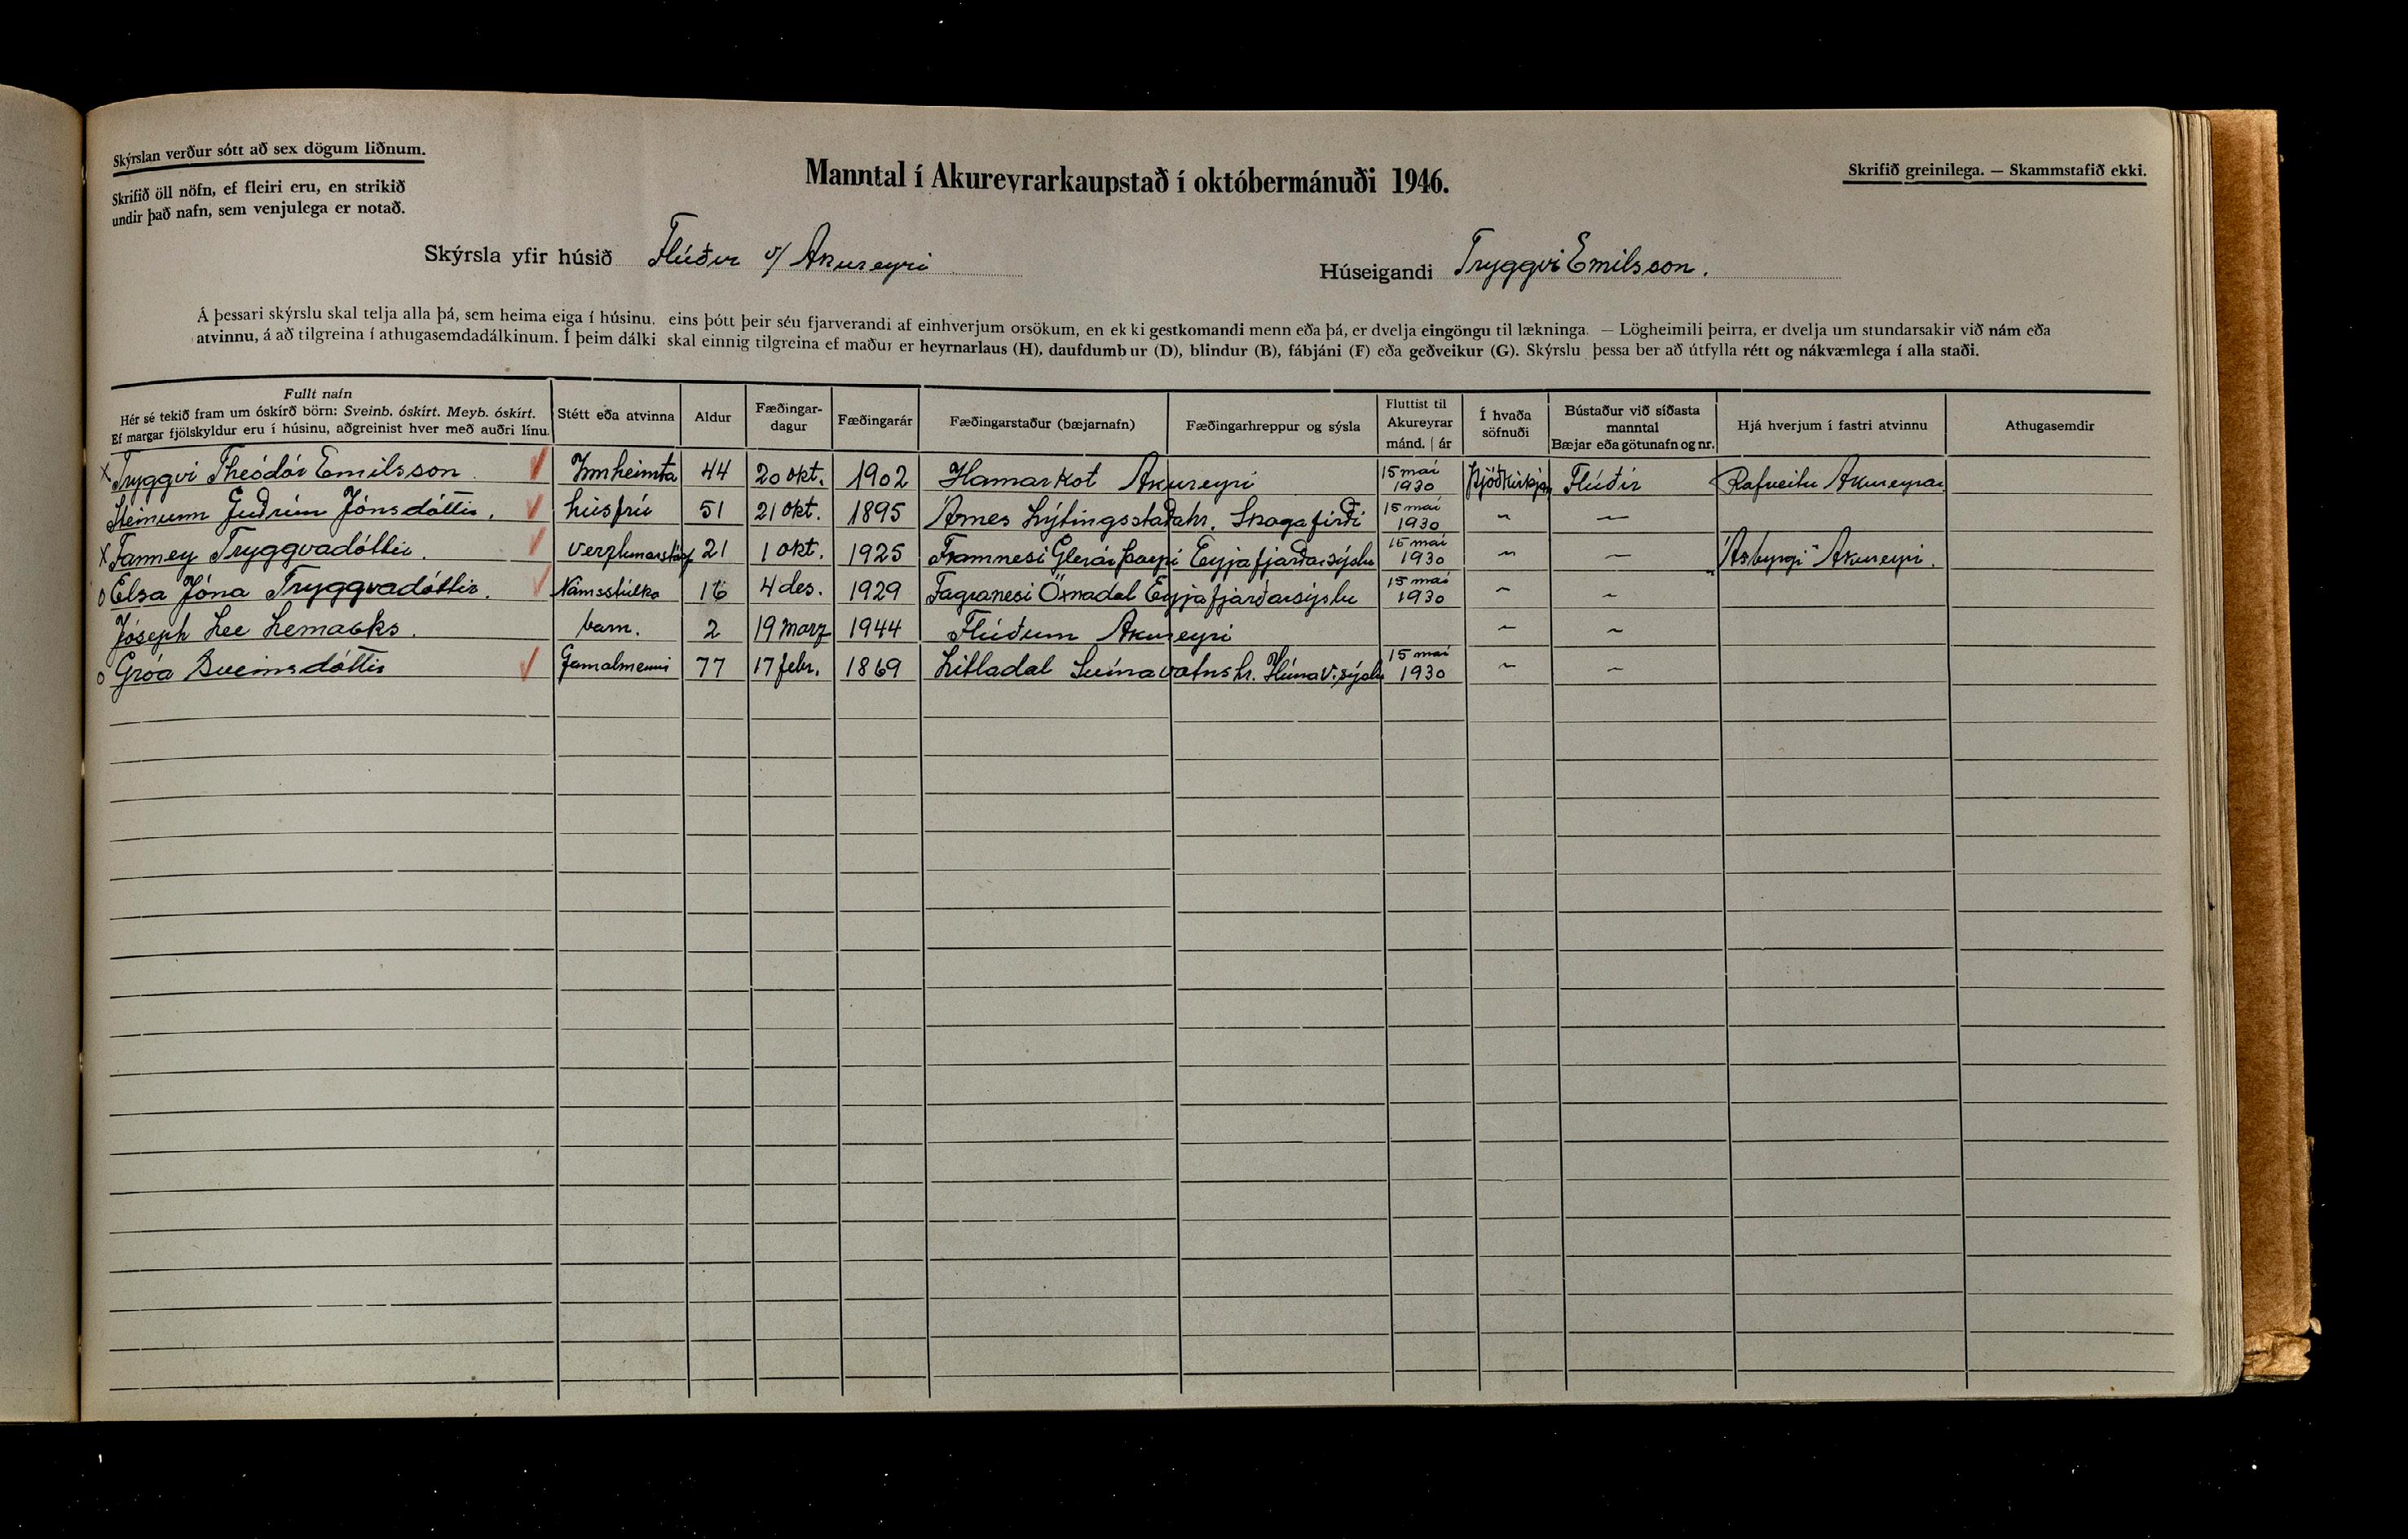 Skýrslan verður sótt að sex dögum liðnum.
Skrifið öll nöfn, ef fleiri eru, en strikið
undir það nafn, sem venjulega er notað.
Manntal í Akureyrarkaupstað í októbermánuði 1946.
Skrifið greinilega. — Skammstafið ekki.
Skýrsla yfir húsið Flúðir v/ Akureyri
Húseigandi Tryggvi Emilsson.
Á þessari skýrslu skal telja alla þá, sem heima eiga í húsinu, eins þótt þeir séu fjarverandi af einhverjum orsökum, en ekki gestkomandi menn eða þá, er dvelja eingöngu til lækninga. — Lögheimili þeirra, er dvelja um stundarsakir við nám eða
atvinnu, á að tilgreina í athugasemdadálkinum. Í þeim dálki skal einnig tilgreina ef maður er heyrnarlaus (H), daufdumbur (D), blindur (B), fábjáni (F) eða geðveikur (G). Skýrslu þessa ber að útfylla rétt og nákvæmlega í alla staði.
Fullt nafn
Hér sé tekið fram um óskírð börn: Sveinb. óskírt. Meyb. óskírt.
Ef margar fjölskyldur eru í húsinu, aðgreinist hver með auðri línu.
Stétt eða atvinna
Aldur
Fæðingar-
dagur
Fæðingarár
Fæðingarstaður (bæjarnafn)
Fæðingarhreppur og sýsla
Fluttist til
Akureyrar
mánd. | ár
Í hvaða
söfnuði
Bústaður við síðasta
manntal
Bæjar eða götunafn og nr.
Hjá hverjum í fastri atvinnu
Athugasemdir
x Tryggvi Theódór Emilsson Innheimta 44 20 okt. 1902 Hamarkot Akureyri 15 mai 1930 Þjóðkirkju Flúðir Rafveitu Akureyrar
Steinunn Guðrún Jónsdóttir. húsfrú 51 21 okt. 1895 Árnes Lýtingsstaðahr. Skagafirði 15 mai 1930 ~ ~
x Fanney Tryggvadóttir. Verzlunarstörf 21 1 okt. 1925 Framnesi Glerárþorpi Eyjafjarðarsýslu 15 mai 1930 ~ ~ "Ásbyrgi" Akureyri.
o Elsa Jóna Tryggvadóttir. Námsstúlka 16 4 des. 1929 Fagranesi Öxnadal Eyjafjarðarsýslu 15 mai 1930 ~ ~
Jóseph Lee Lemacks. barn. 2 19 marz 1944 Flúðum Akureyri ~ ~
o Gróa Sveinsdóttir Gamalmenni 77 17 febr. 1869 Litladal Svínavatnshr. Húnav.sýslu 15 mai 1930 ~ ~